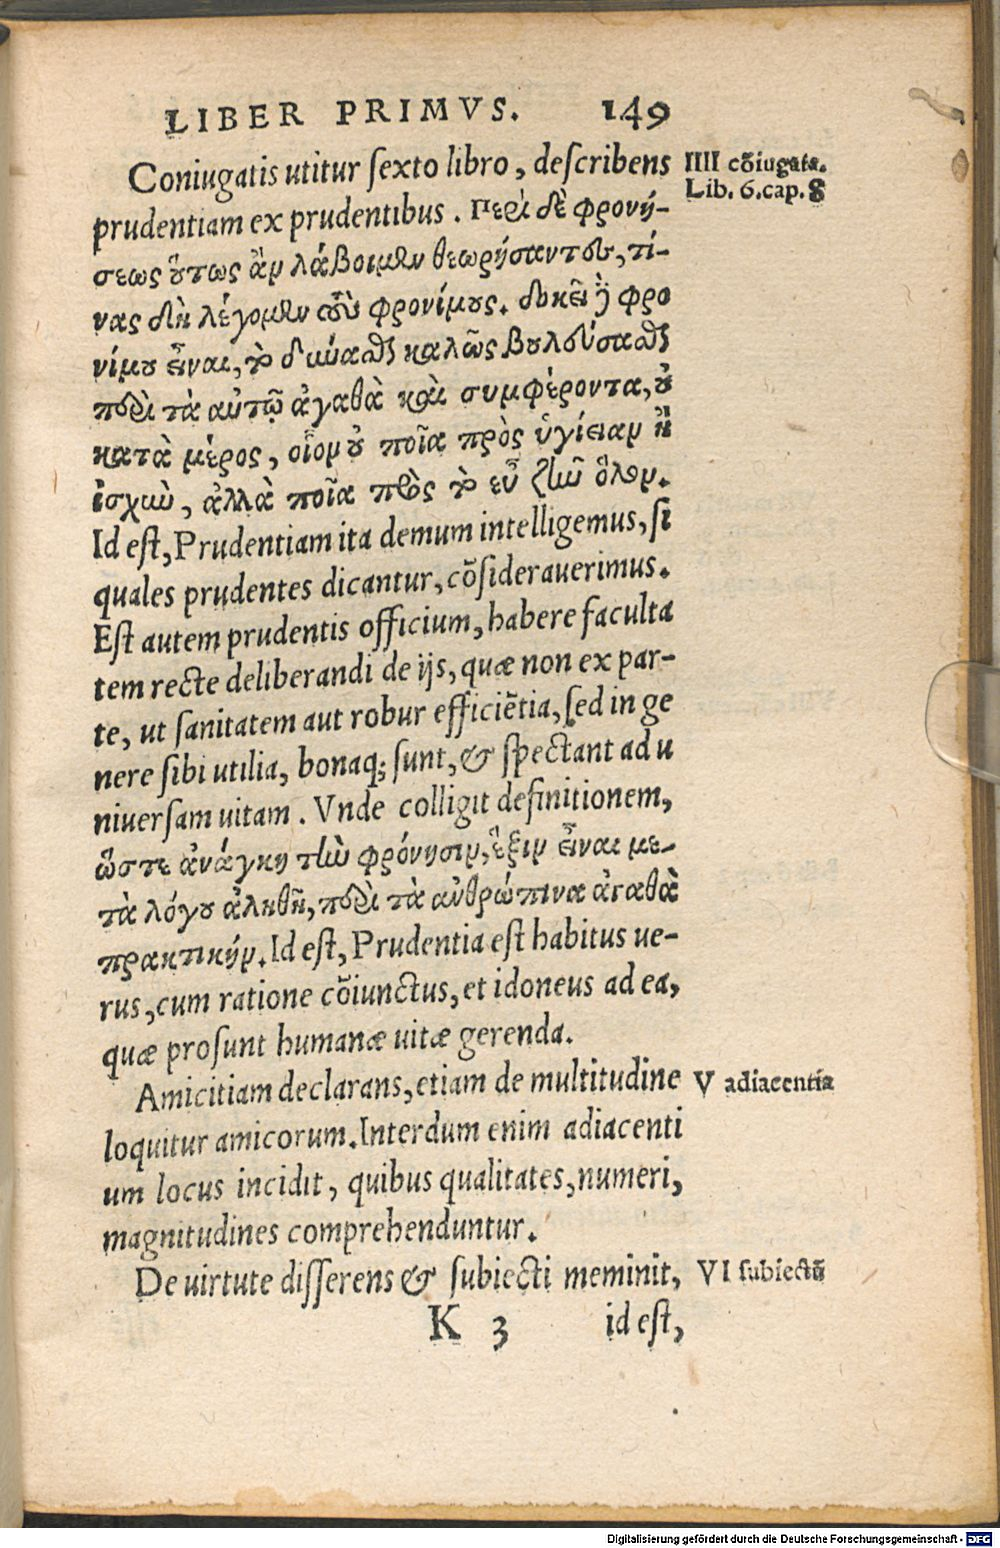 LIBER PRIMVS. 149
Coniugatis utitur sexto libro, describens
IIII cõiugata.
Lib. 6. cap. 8
prudentiam ex prudentibus. Περὶ δὲ φρονή-
σεως οὕτως ἂν λάβοιμεν θεωρήσαντες, τί-
νας δὴ λέγομεν τοὺς φρονίμους. δοκεῖ δὴ φρο
νίμου εἶναι, τὸ δύνασθαι καλῶς βουλεύσασθαι
περὶ τὰ αὑτῷ ἀγαθὰ καὶ συμφέροντα, οὐ
κατὰ μέρος, οἷον οὐ ποῖα πρὸς ὑγίειαν ἢ
ἰσχὺν, ἀλλὰ ποῖα πρὸς τὸ εὖ ζῆν ὅλον.
Id est, Prudentiam ita demum intelligemus, si
quales prudentes dicantur, cõsiderauerimus.
Est autem prudentis officium, habere faculta
tem recte deliberandi de ijs, quæ non ex par-
te, ut sanitatem aut robur efficiẽtia, sed in ge
nere sibi utilia, bonaq; sunt, & spectant ad u
niuersam uitam. Vnde colligit definitionem,
ὥστε ἀνάγκη τὴν φρόνησιν, ἕξιν εἶναι με-
τὰ λόγου ἀληθῆ, περὶ τὰ ἀνθρώπινα ἀγαθὰ
πρακτικήν. Id est, Prudentia est habitus ue-
rus, cum ratione cõiunctus, et idoneus ad ea,
quæ prosunt humanæ uitæ gerenda.
Amicitiam declarans, etiam de multitudine
V adiacentia
loquitur amicorum. Interdum enim adiacenti
um locus incidit, quibus qualitates, numeri,
magnitudines comprehenduntur.
De uirtute disserens & subiecti meminit,
VI subiectũ
K 3 id est,
Digitalisierung gefördert durch die Deutsche Forschungsgemeinschaft - DFG